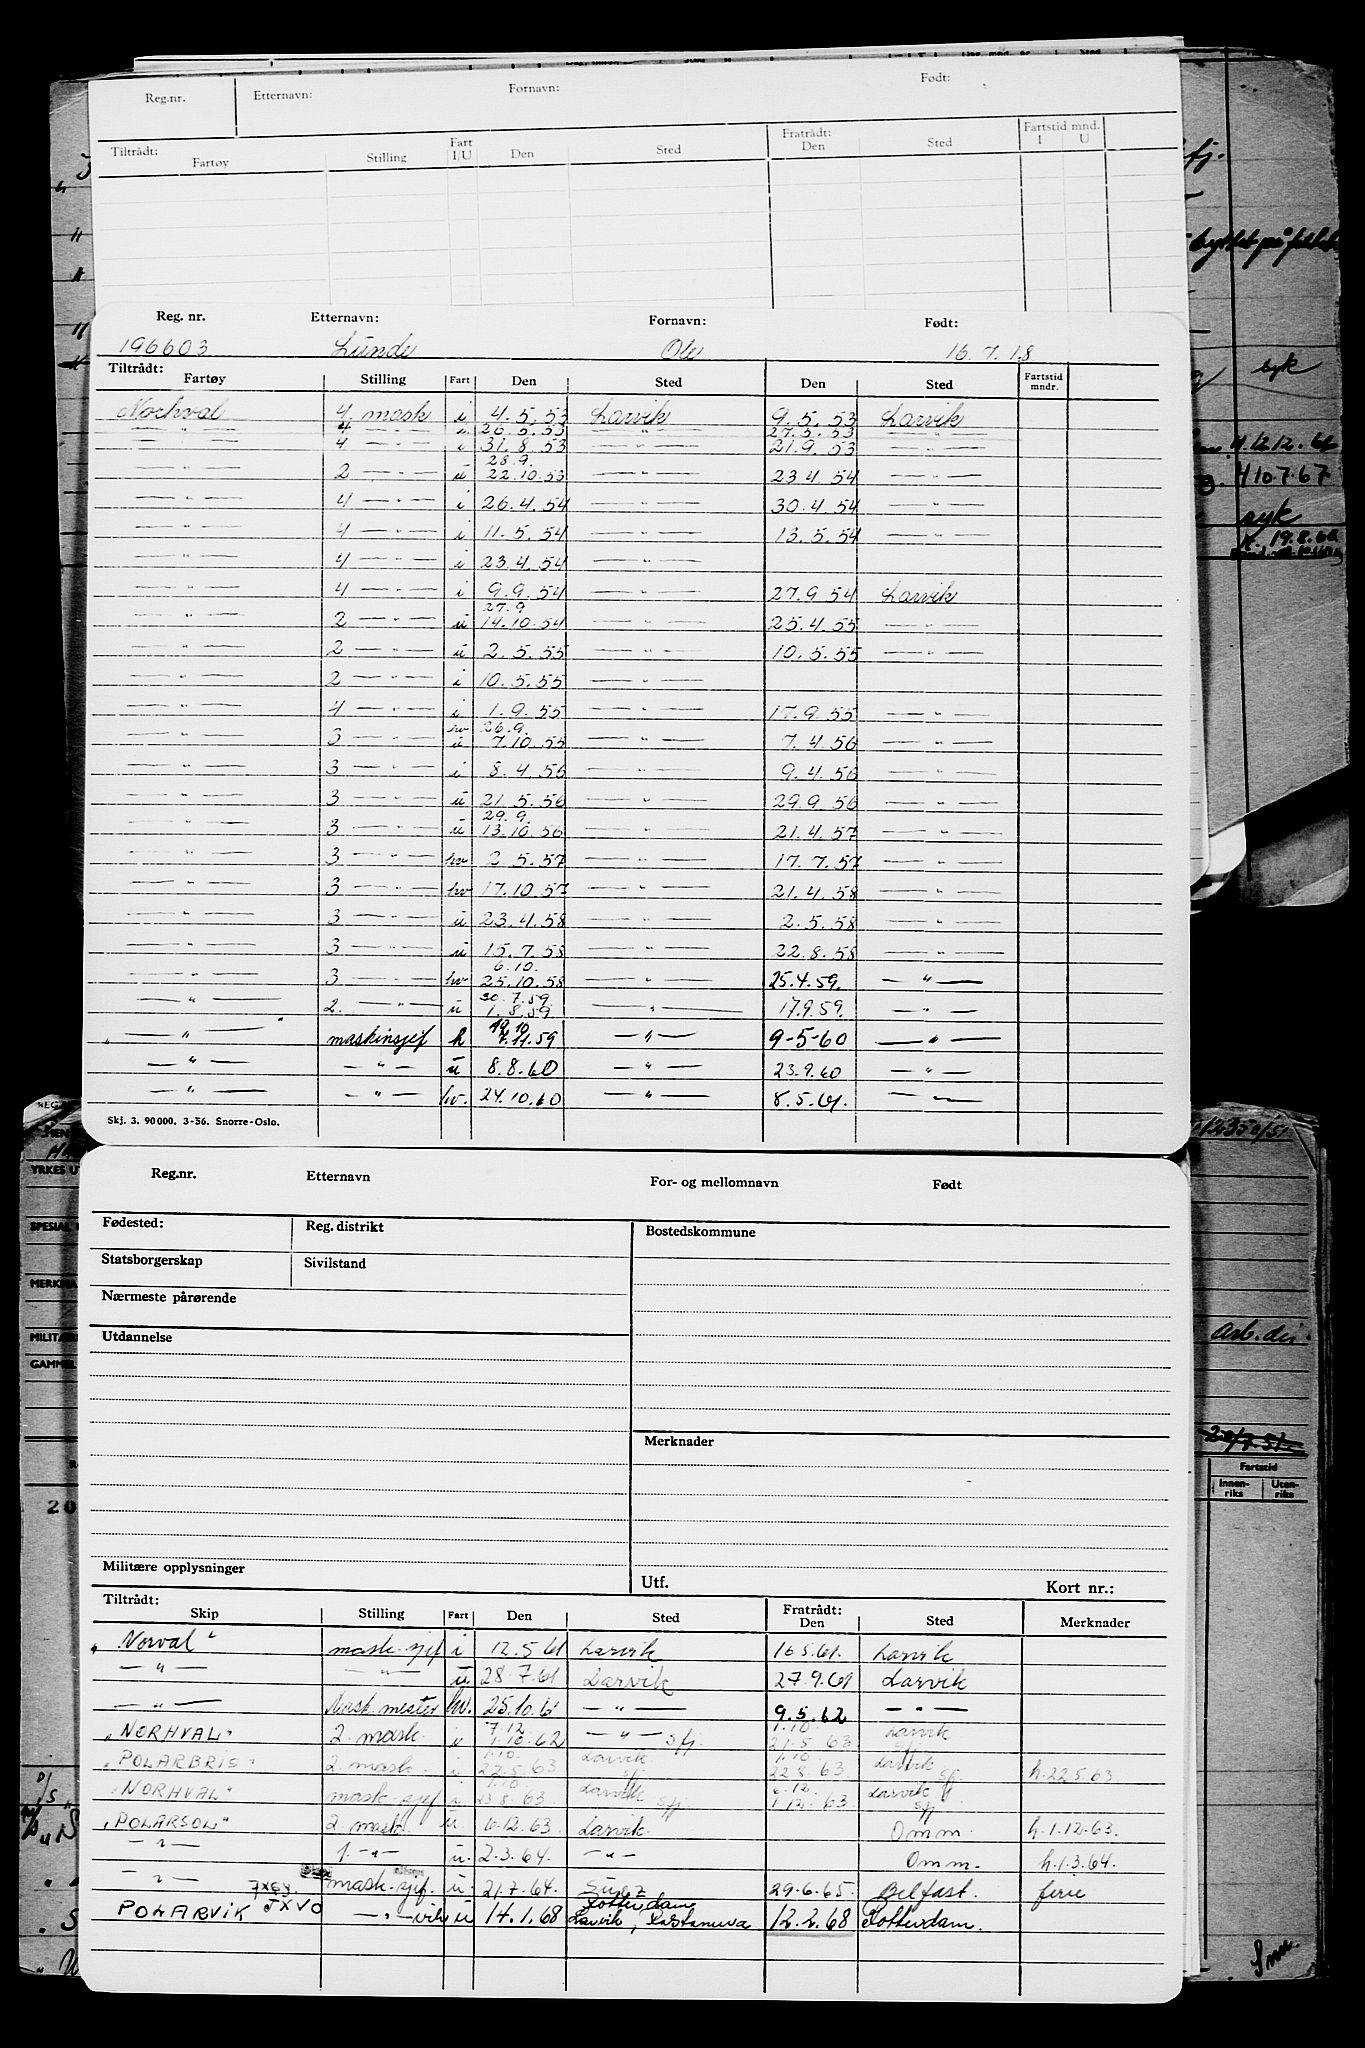 Reg.nr. Etternavn: Fornavn: Født:
Tiltrådt: Fratrådt: Fartstid mnd.
Fartøy Stilling Fart I/U Den Sted Den Sted I U
Reg. nr. Etternavn: Fornavn: Født:
196603 Lunde Ole 16.7.18
Tiltrådt:
Fartøy Stilling Fart Den Sted Den Sted Fartstid mndr.
Norhval 4. mask i 4.5.53 Larvik 9.5.53 Larvik
— " — 4 — " — i 26.5.53 — " — 27.5.53 — " —
— " — 4 — " — i 31.8.53 — " — 21.9.53 — " —
28.9.
— " — 2 — " — u 22.10.53 — " — 23.4.54 — " —
— " — 4 — " — i 26.4.54 — " — 30.4.54 — " —
— " — 4 — " — i 11.5.54 — " — 13.5.54 — " —
— " — 4 — " — i 23.4.54 — " —
— " — 4 — " — i 9.9.54 — " — 27.9.54 Larvik
27.9
— " — 2 — " — u 14.10.54 — " — 25.4.55 — " —
— " — 2 — " — u 2.5.55 — " — 10.5.55 — " —
— " — 2 — " — i 10.5.55 — " —
— " — 4 — " — i 1.9.55 — " — 17.9.55 — " —
hv 26.9.
— " — 3 — " — u 7.10.55 — " — 7.4.56 — " —
— " — 3 — " — i 8.4.56 — " — 9.4.56 — " —
— " — 3 — " — u 21.5.56 — " — 29.9.56 — " —
29.9.
— " — 3 — " — u 13.10.56 — " — 21.4.57 — " —
— " — 3 — " — hv 2.5.57 — " — 17.7.57 — " —
— " — 3 — " — hv 17.10.57 — " — 21.4.58 — " —
— " — 3 — " — u 23.4.58 — " — 2.5.58 — " —
— " — 3 — " — u 15.7.58 — " — 22.8.58 — " —
6.10.
— " — 3 — " — hv 25.10.58 — " — 25.4.59. — " —
30.7.59.
— " — 2. — " — u 1.8.59 — " — 17.9.59. — " —
19.10
— " — maskinsjef h 7.11.59 — " — 9-5-60 — " —
— " — — " — u 8.8.60 — " — 23.9.60 — " —
— " — — " — hv. 24.10.60 — " — 8.5.61. — " —
Skj. 3. 90000. 3-56. Snorre-Oslo.
Reg.nr. Etternavn For- og mellomnavn Født
Fødested: Reg. distrikt Bostedskommune
Statsborgerskap Sivilstand
Nærmeste pårørende
Utdannelse
Merknader
Militære opplysninger
Utf. Kort nr.:
Tiltrådt: Fratrådt:
Skip Stilling Fart Den Sted Den Sted Merknader
"Norval" mask.sjef i 12.5.61 Larvik 16.5.61. Larvik
— " — — " — u 28.7.61 Larvik 27.9.61 Larvik
— " — Mask.mester hv. 25.10.61 — " — 9.5.62 — " —
7.12 1.10
"NORHVAL" 2. mask. i 1.10.62 — " — sfj. 21.5.63 Larvik sfj
1.10. 1.10
"POLARBRIS" 2. mask. i 22.5.63 Larvik sfj 22.8.63. Larvik sfj h.22.5.63
1.10. 6.12
"NORHVAL" mask-sjef i 23.8.63. Larvik sfj 1.12.63 Larvik sfj
"POLARSOL" 2. mask. u. 6.12.63. Larvik. Omm. h.1.12.63.
— " — 1. — " — u. 2.3.64. — " — Omm. h.1.3.64.
— " — mask-sjef. u. 21.7.64. Suez 29.6.65. Belfast. ferie
JXVO Rotterdam
POLARVIK — " — u 14.1.68 Larvik, 12.2.68 Rotterdam.
syk
4.12.12.66
410.7.67
syk
19.8.60
YRKES
MERKNA
MILITÆ
GAMMEL
Arb.
Fartstid
Innen-riks Uten-riks
20